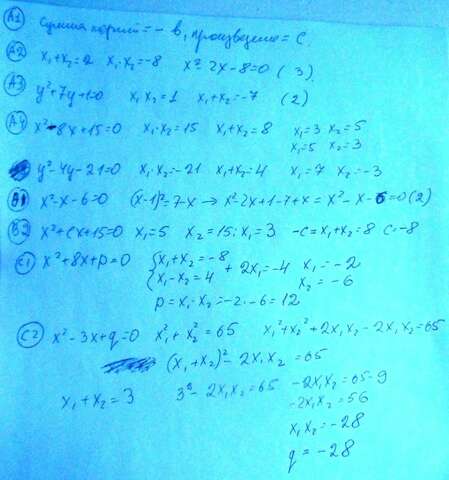 A1 Сумма корней = - b, произведение = C.
A2 x₁+x₂=2 x₁·x₂=-8 x²-2x-8=0 (3)
A3 y²+7y+1=0 x₁x₂=1 x₁+x₂=-7 (2)
A4 x²-8x+15=0 x₁·x₂=15 x₁+x₂=8 x₁=3 x₂=5
x₁=5 x₂=3
y²-4y-21=0 x₁·x₂=-21 x₁+x₂=4 x₁=7 x₂=-3
B1 x²-x-6=0 (x-1)²=7-x → x²-2x+1-7+x = x²-x-6=0 (2)
B2 x²+cx+15=0 x₁=5 x₂=15:x₁=3 -c=x₁+x₂=8 c=-8
C1 x²+8x+p=0 {x₁+x₂=-8
x₁-x₂=4 + 2x₁=-4 x₁=-2
x₂=-6
p=x₁·x₂=-2·-6=12
C2 x²-3x+q=0 x₁²+x₂²=65 x₁²+x₂²+2x₁x₂-2x₁x₂=65
(x₁+x₂)²-2x₁x₂=65
x₁+x₂=3 3²-2x₁x₂=65 -2x₁x₂=65-9
-2x₁x₂=56
x₁x₂=-28
q=-28